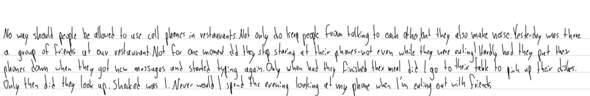 No way should people be allowed to use cell phones in restaurants. Not only do keep people from talking to each other, but they also make noise. Yesterday was there
a group of friends at our restaurant. Not for one moment did they stop staring at their phones – not even while they were eating! Hardly had they put their
phones down when they got new messages and started typing again. Only when had they finished their meal did I go to their table to pick up their dishes.
Only then did they look up. Shocked was I. Never would I spend the evening looking at my phone when I'm eating out with friends